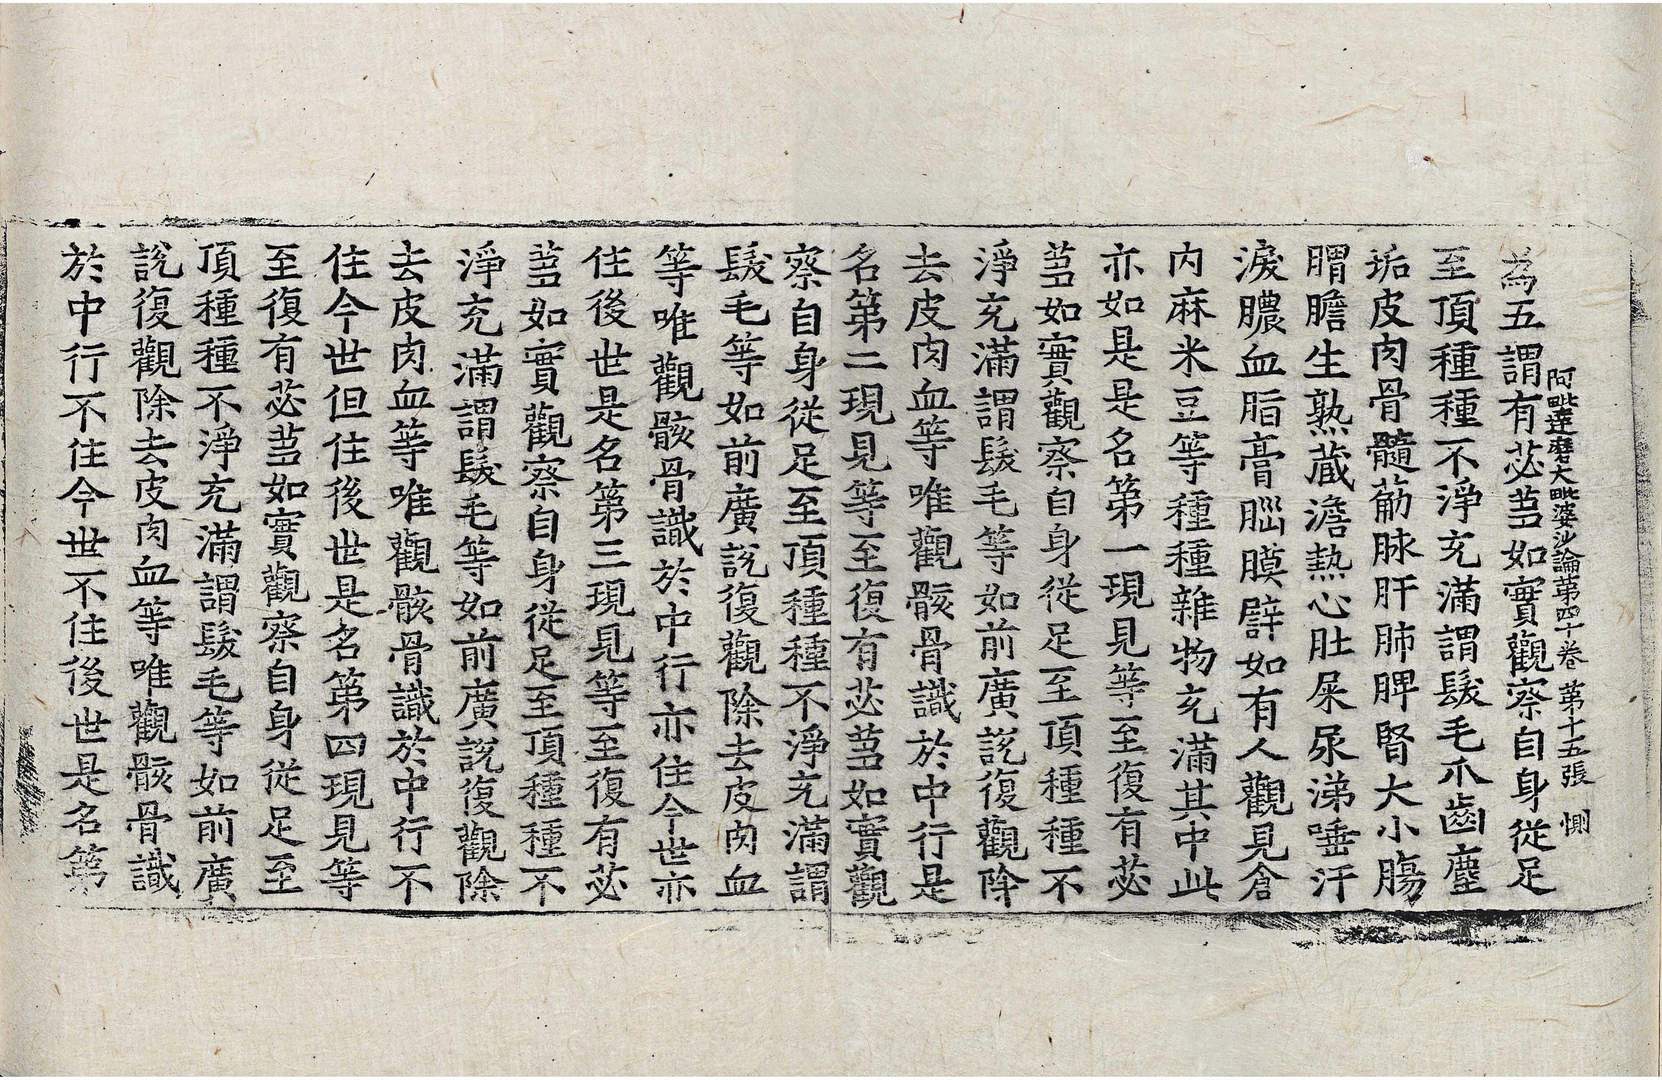 阿毗達磨大毗婆沙論第四十卷 第十五張 惻
為五謂有苾芻如實觀察自身從足
至頂種種不淨充滿謂髮毛爪齒塵
垢皮肉骨髓筋脉肝肺脾腎大小膓
䏣膽生熟藏澹熱心肚屎尿涕唾汗
淚膿血脂膏𦛁膜譬如有人觀見倉
内麻米豆等種種雜物充滿其中此
亦如是是名第一現見等至復有苾
芻如實觀察自身從足至頂種種不
淨充滿謂髮毛等如前廣說復觀除
去皮肉血等唯觀骸骨識於中行是
名第二現見等至復有苾芻如實觀
察自身從足至頂種種不淨充滿謂
髮毛等如前廣說復觀除去皮肉血
等唯觀骸骨識於中行亦住今世亦
住後世是名第三現見等至復有苾
芻如實觀察自身從足至頂種種不
淨充滿謂髮毛等如前廣說復觀除
去皮肉血等唯觀骸骨識於中行不
住今世但住後世是名第四現見等
至復有苾芻如實觀察自身從足至
頂種種不淨充滿謂髮毛等如前廣
說復觀除去皮肉血等唯觀骸骨識
於中行不住今世不住後世是名第